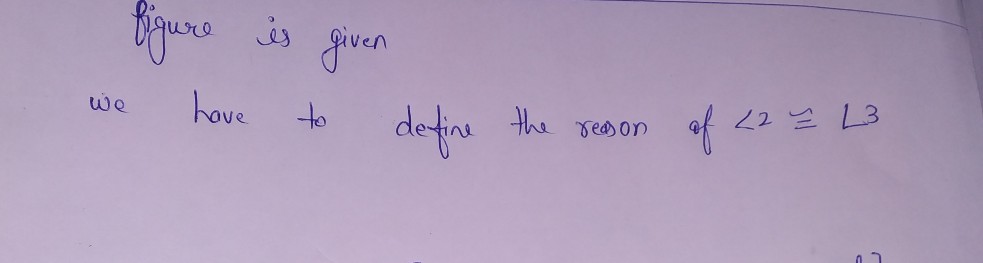 figure is given
we have to define the reason of ∠2 ≅ ∠3